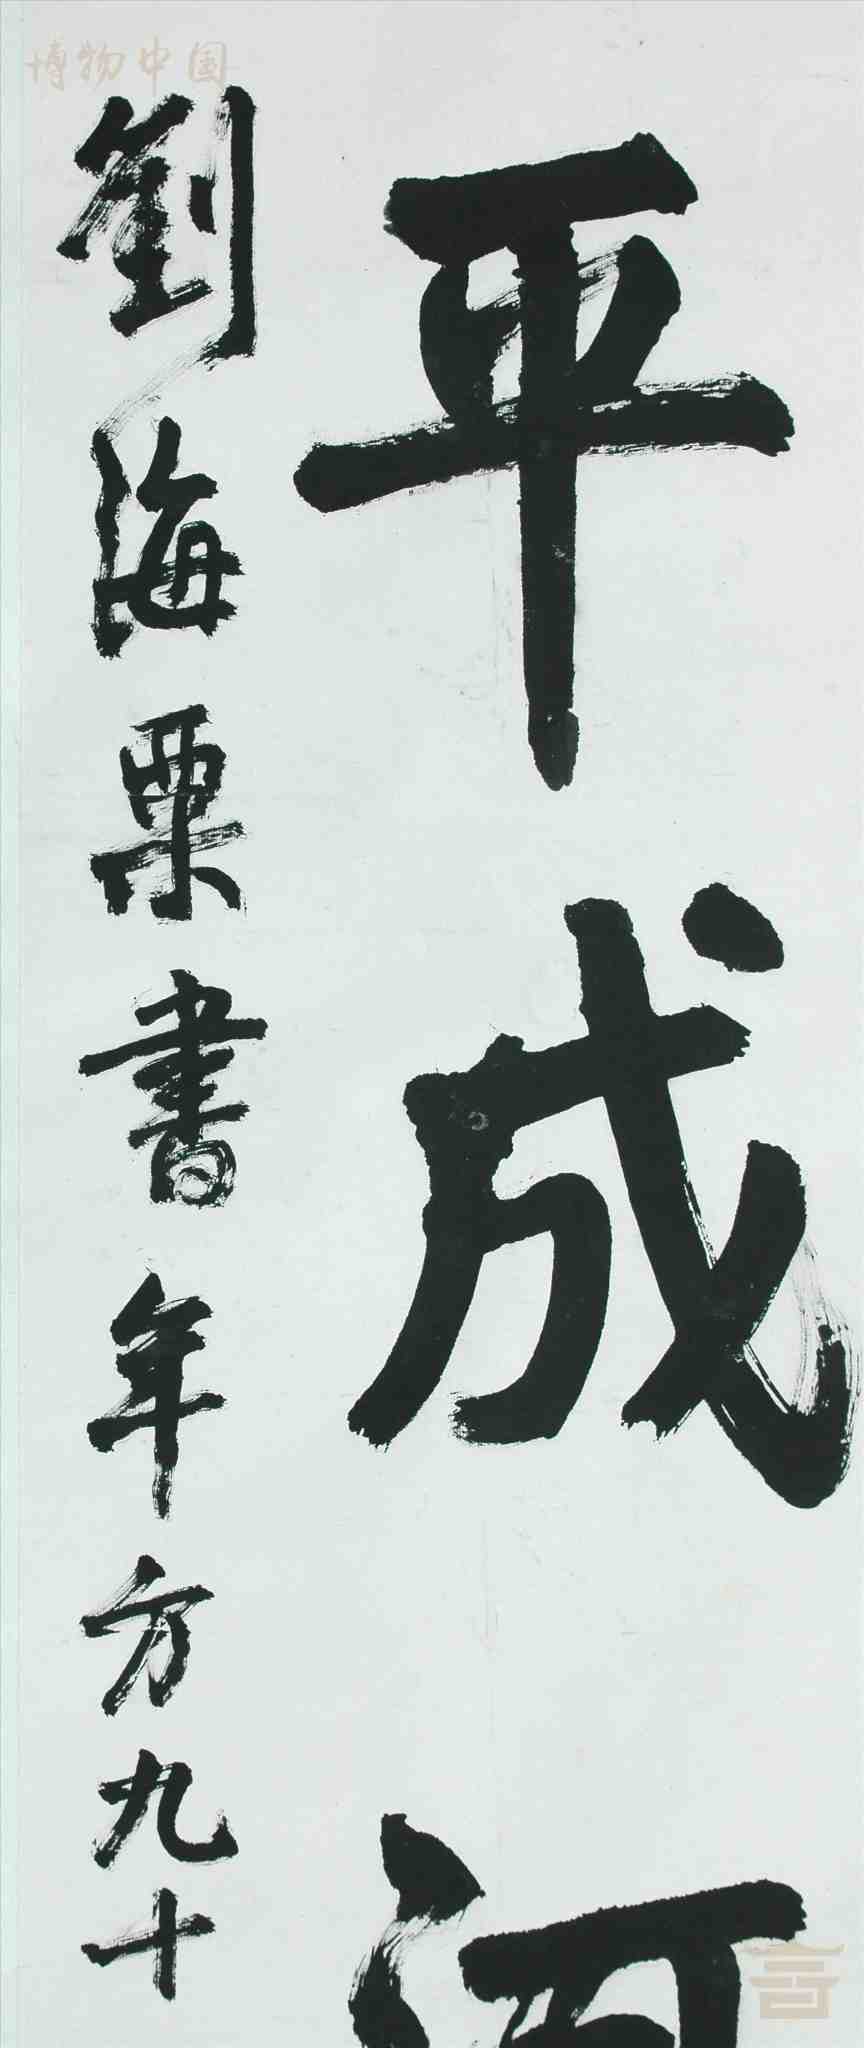 博物中国
平成河
劉海粟書年方九十